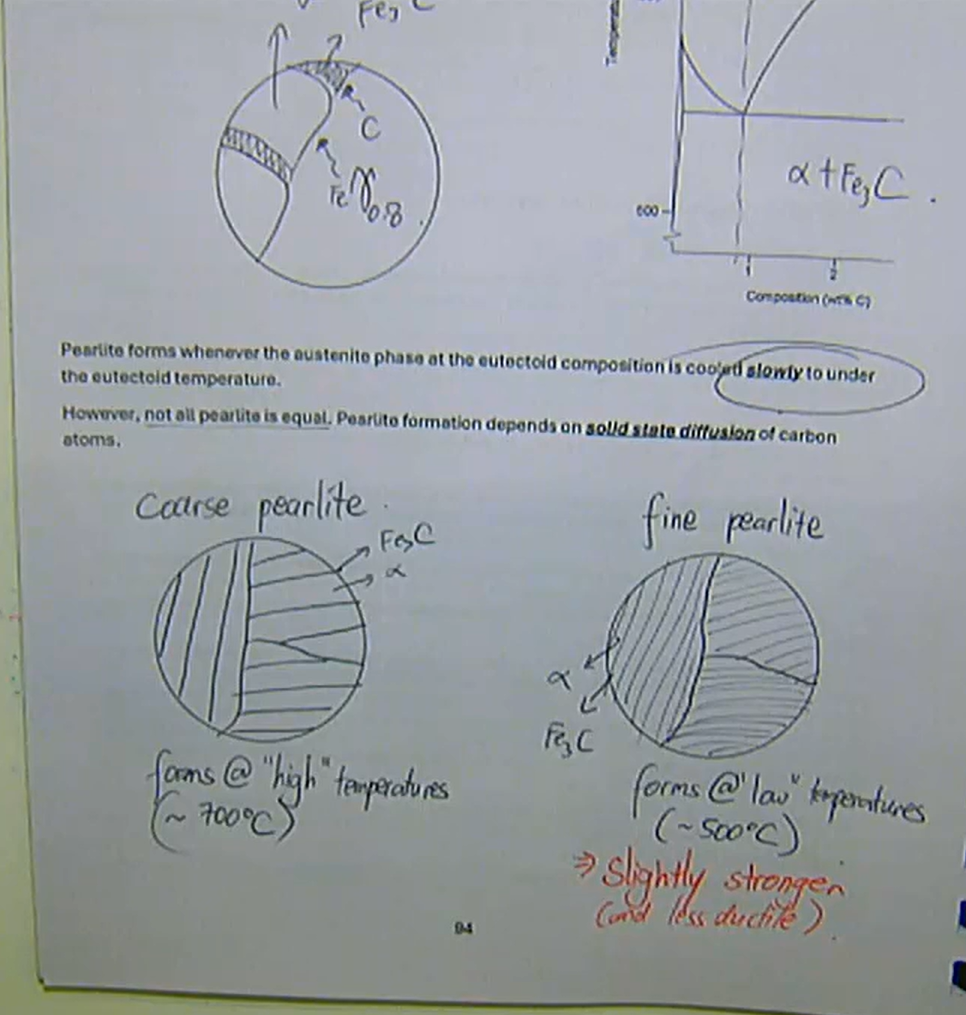 Fe₃ C
C
Fe γ0.8
α + Fe₃C.
600
1
2
Composition (wt% C)
Pearlite forms whenever the austenite phase at the eutectoid composition is cooled slowly to under
the eutectoid temperature.
However, not all pearlite is equal. Pearlite formation depends on solid state diffusion of carbon
atoms.
Coarse pearlite.
Fe₃C
α
forms @ "high" temperatures
(~ 700°C)
fine pearlite
α
Fe₃C
forms @ "low" temperatures
(~500°C)
⇒ Slightly stronger
(and less ductile).
94